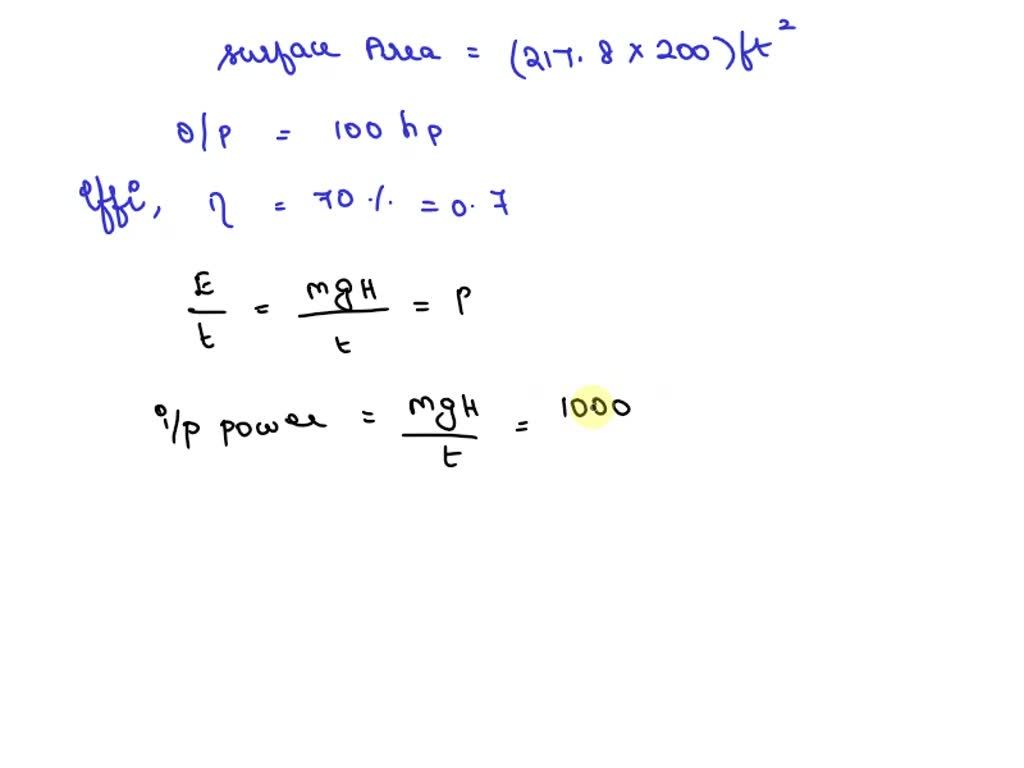 surface Area = (217.8 × 200) ft²
o/p = 100 hp
Effi, η = 70 % = 0.7
E/t = mgH/t = P
i/p power = mgH/t = 1000